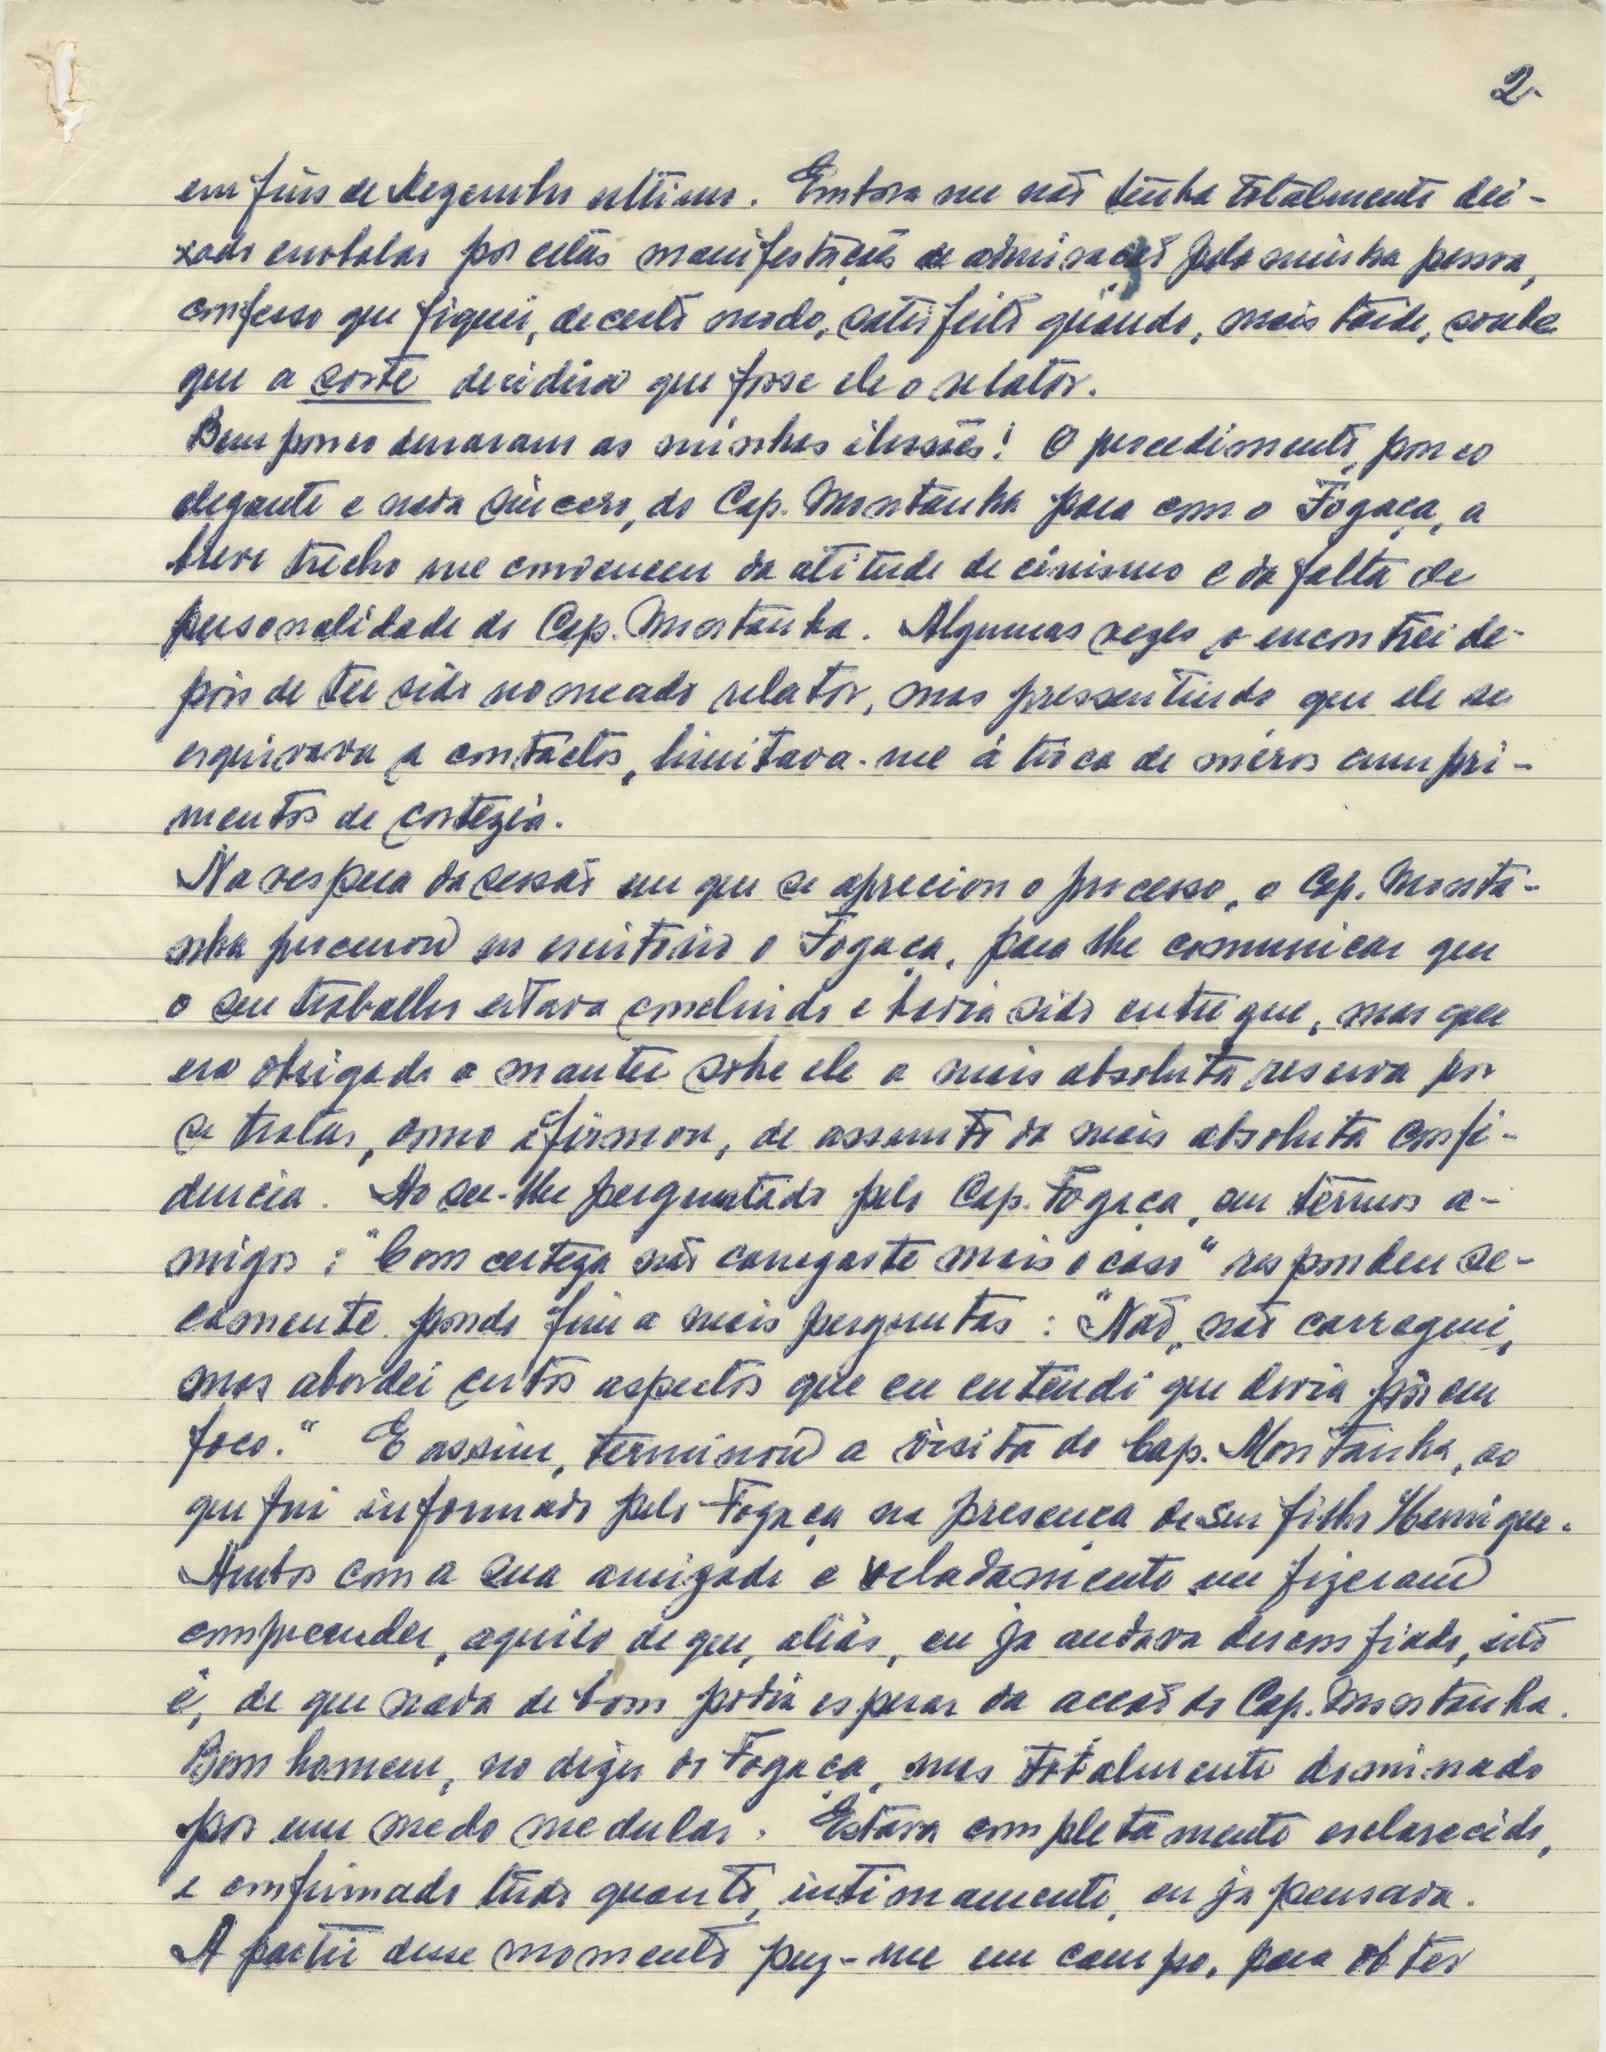 2.
em fins de Dezembro ultimo. Embora me não tenha totalmente dei-
xado embalar por estas manifestações de admiração pela minha pessoa,
confesso que fiquei, de certo modo, satisfeito quando, mais tarde, soube
que a sorte decidira que fosse ele o relator.
Bem pouco duraram as minhas ilusões! O procedimento, pouco
elegante e nada sincero, do Cap. Montanha para com o Fogaça, a
breve trecho me convenceu da atitude de cinismo e da falta de
personalidade do Cap. Montanha. Algumas vezes o encontrei de-
pois de ter sido nomeado relator, mas pressentindo que ele se
esquivava a contactos, limitava-me á troca de méros cumpri-
mentos de cortezia.
Na vespera da sessão em que se apreciou o processo, o Cap. Monta-
nha procurou no escritório o Fogaça, para lhe comunicar que
o seu trabalho estava concluido e havia sido entregue, mas que
era obrigado a manter sobre ele a mais absoluta reserva por
se tratar, como afirmou, de assunto da mais absoluta confi-
dencia. Ao ser-lhe perguntado pelo Cap. Fogaça, em termos a-
migos: "Com certeza não carregaste mais o caso" respondeu se-
camente pondo fim a mais perguntas: "Não, não carreguei,
mas abordei certos aspectos que eu entendi que devia pôr em
foco." E assim, terminou a visita do Cap. Montanha, ao
que fui informado pelo Fogaça na presença de seu filho Henrique.
Ambos com a sua amizade e veladamente me fizeram
compreender, aquilo de que, aliás, eu ja andava desconfiado, isto
é, de que nada de bom podia esperar da acção do Cap. Montanha.
Bom homem, no dizer do Fogaça, mas totalmente dominado
por um medo medular. Estava completamente esclarecido,
e confirmado tudo quanto, intimamente, eu ja pensava.
A partir desse momento puz-me em campo, para obter